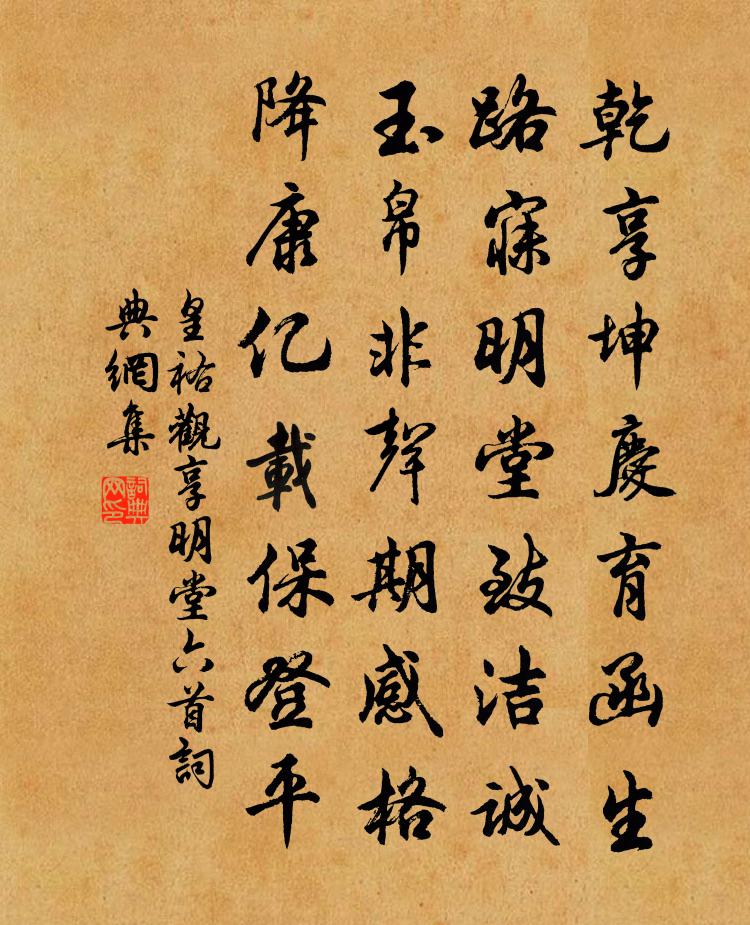 乾享坤慶育函生
路寢明堂致洁誠
玉帛非聲期感格
降康亿載保登平
皇祐觀享明堂六首詞
典網集
詞典
网印